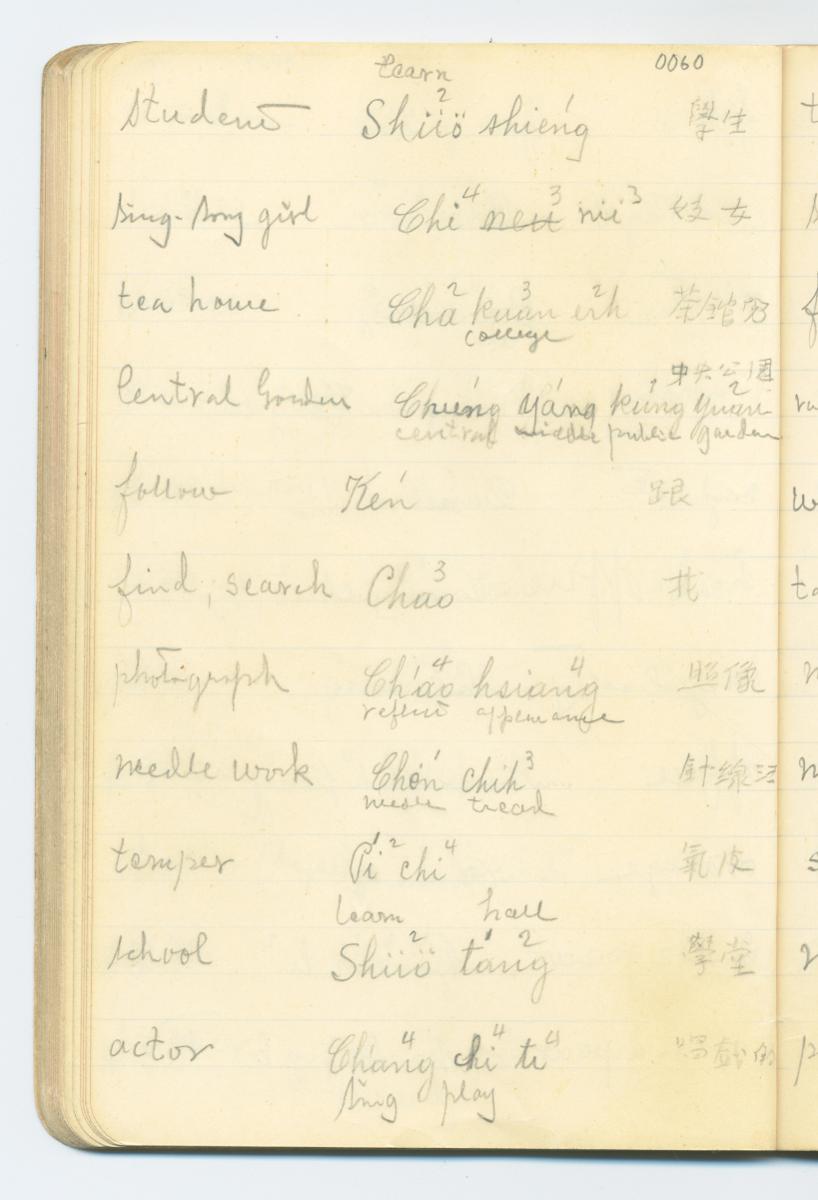 learn 0060
student Shüö² shiéng 學生
sing-song girl Chi⁴ neu³ nü³ 妓女
tea house Cha² kuan³ erh² 茶館兒
college
中央公園
Central Garden Chuńg yáng kúng yuan²
central middle public garden
follow Keń 跟
find, search Chao³ 找
photograph Ch'ao⁴ hsiang⁴ 照像
reflect appearance
needle work Chěn chih³ 針線活
needle tread
temper P'i² chi⁴ 氣皮
learn hall
school Shüö² t'ang² 學堂
actor Ch'ang⁴ chi⁴ ti⁴ 唱戲的
sing play